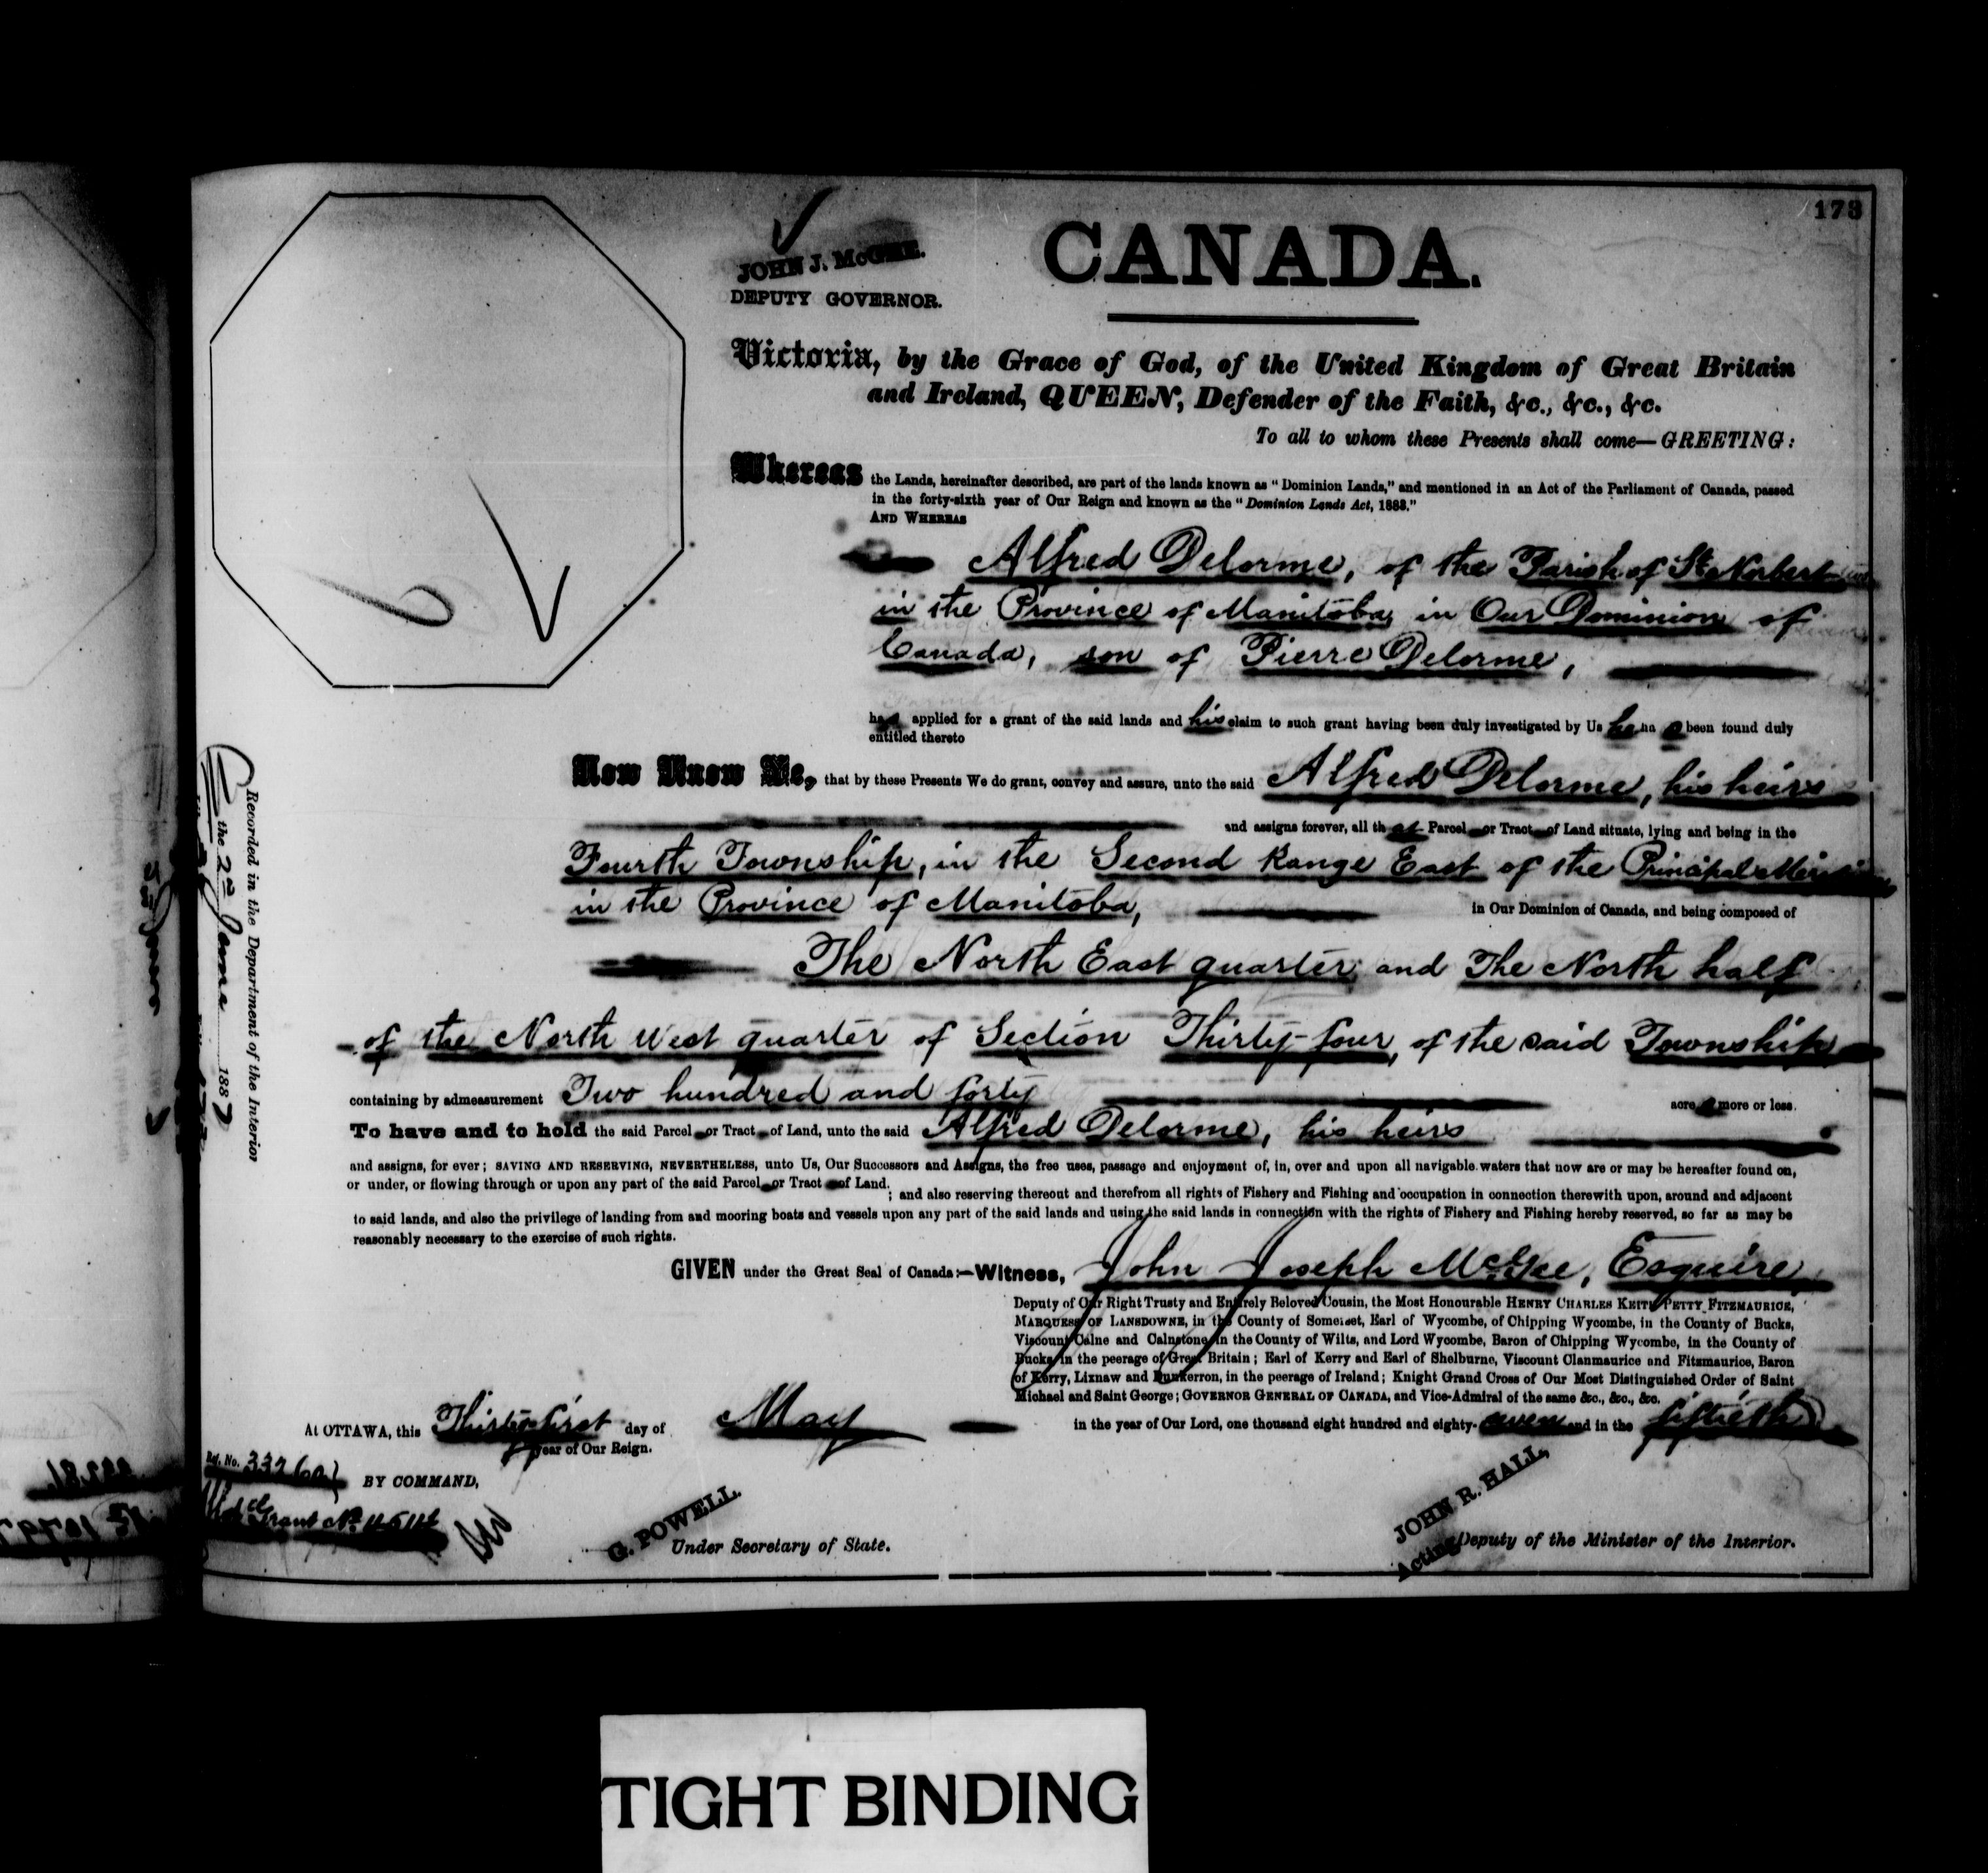 173
JOHN J. McGEE.
DEPUTY GOVERNOR.
CANADA.
Victoria, by the Grace of God, of the United Kingdom of Great Britain
and Ireland, QUEEN, Defender of the Faith, &c., &c., &c.
To all to whom these Presents shall come—GREETING:
Whereas the Lands, hereinafter described, are part of the lands known as "Dominion Lands," and mentioned in an Act of the Parliament of Canada, passed
in the forty-sixth year of Our Reign and known as the "Dominion Lands Act, 1883."
AND WHEREAS
Alfred Delorme, of the Parish of St. Norbert
in the Province of Manitoba, in Our Dominion of
Canada, son of Pierre Delorme,
has applied for a grant of the said lands and his claim to such grant having been duly investigated by Us he has been found duly
entitled thereto
Now Know Ye, that by these Presents We do grant, convey and assure, unto the said Alfred Delorme, his heirs
and assigns forever, all that Parcel or Tract of Land situate, lying and being in the
Fourth Township, in the Second Range East of the Principal Meridian
in the Province of Manitoba, in Our Dominion of Canada, and being composed of
The North East quarter and The North half
of the North West quarter of Section Thirty-four, of the said Township
containing by admeasurement Two hundred and forty acres more or less.
To have and to hold the said Parcel or Tract of Land, unto the said Alfred Delorme, his heirs
and assigns, for ever; SAVING AND RESERVING, NEVERTHELESS, unto Us, Our Successors and Assigns, the free uses, passage and enjoyment of, in, over and upon all navigable waters that now are or may be hereafter found on,
or under, or flowing through or upon any part of the said Parcel or Tract of Land; and also reserving thereout and therefrom all rights of Fishery and Fishing and occupation in connection therewith upon, around and adjacent
to said lands, and also the privilege of landing from and mooring boats and vessels upon any part of the said lands and using the said lands in connection with the rights of Fishery and Fishing hereby reserved, so far as may be
reasonably necessary to the exercise of such rights.
GIVEN under the Great Seal of Canada:—Witness, John Joseph McGee, Esquire,
Deputy of Our Right Trusty and Entirely Beloved Cousin, the Most Honourable HENRY CHARLES KEITH PETTY FITZMAURICE,
MARQUESS OF LANSDOWNE, in the County of Somerset, Earl of Wycombe, of Chipping Wycombe, in the County of Bucks,
Viscount Calne and Calnstone in the County of Wilts, and Lord Wycombe, Baron of Chipping Wycombe, in the County of
Bucks, in the peerage of Great Britain; Earl of Kerry and Earl of Shelburne, Viscount Clanmaurice and Fitzmaurice, Baron
of Kerry, Lixnaw and Dunkerron, in the peerage of Ireland; Knight Grand Cross of Our Most Distinguished Order of Saint
Michael and Saint George; GOVERNOR GENERAL OF CANADA, and Vice-Admiral of the same &c., &c., &c.
At OTTAWA, this Thirty-first day of May in the year of Our Lord, one thousand eight hundred and eighty-seven and in the fiftieth
year of Our Reign.
BY COMMAND,
Ref. No.
Grant No.
G. POWELL.
Under Secretary of State.
JOHN R. HALL,
Acting Deputy of the Minister of the Interior.
Recorded in the Department of the Interior
the 2nd June 1887
TIGHT BINDING